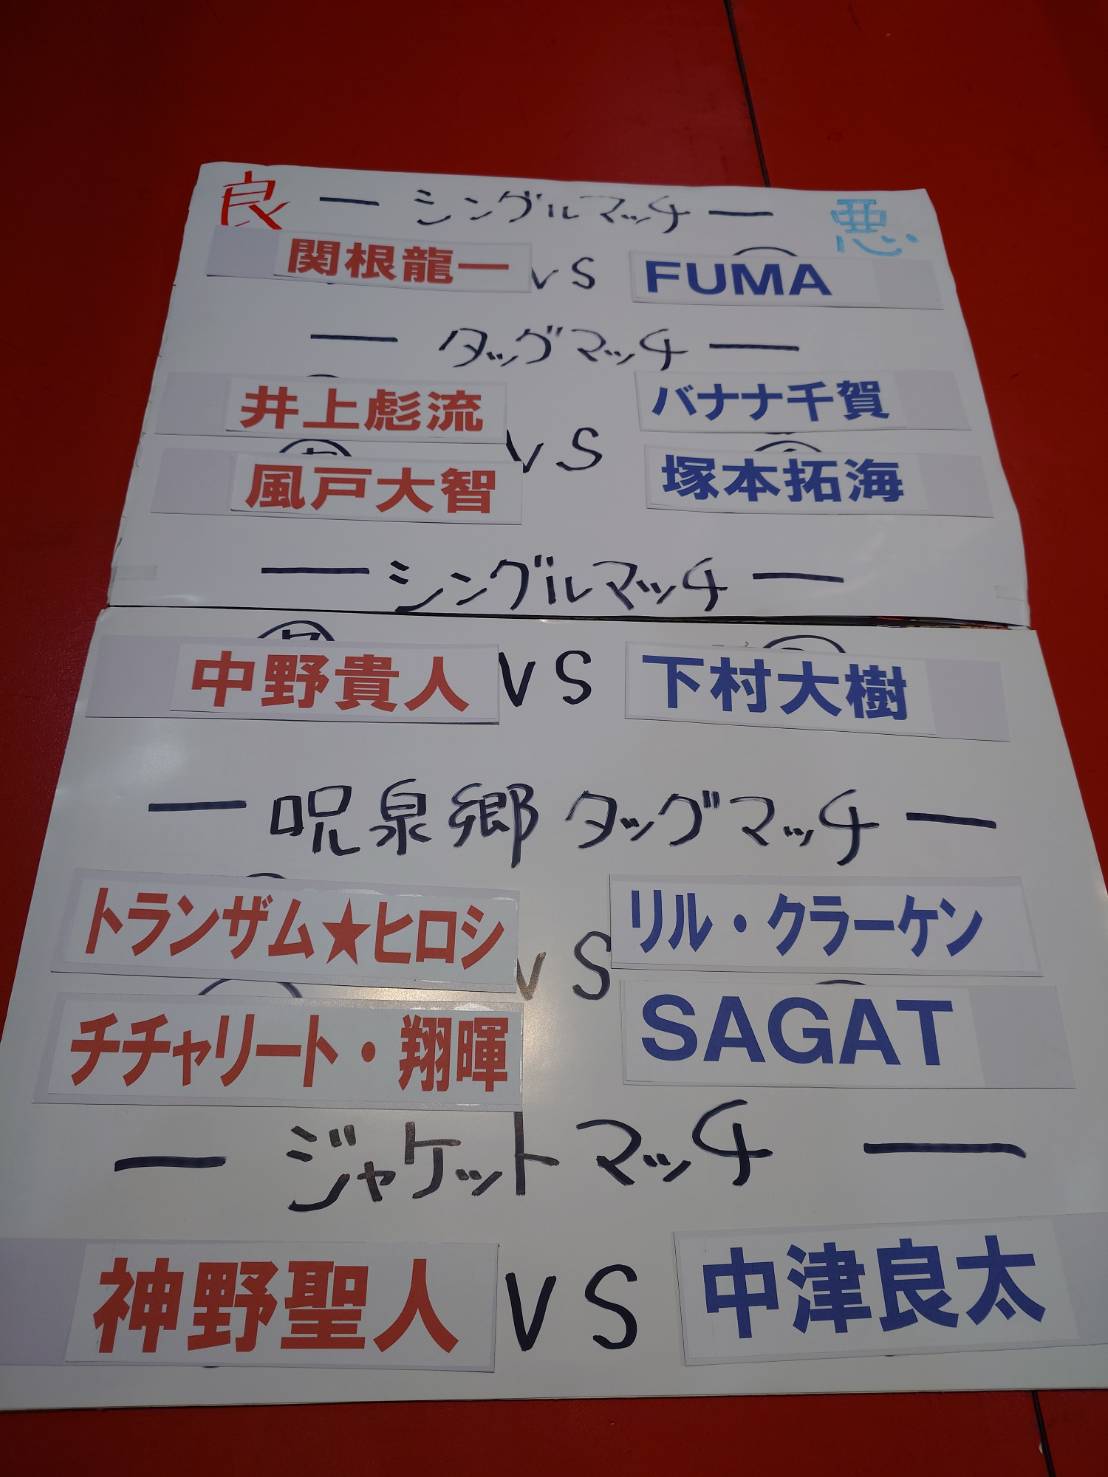 良 ー シングルマッチ ー 悪
関根龍一 VS FUMA
ー タッグマッチ ー
井上彪流 バナナ千賀
VS
風戸大智 塚本拓海
ー シングルマッチ ー
中野貴人 VS 下村大樹
ー 呪泉郷タッグマッチ ー
トランザム★ヒロシ リル・クラーケン
VS
チチャリート・翔暉 SAGAT
ー ジャケットマッチ ー
神野聖人 VS 中津良太